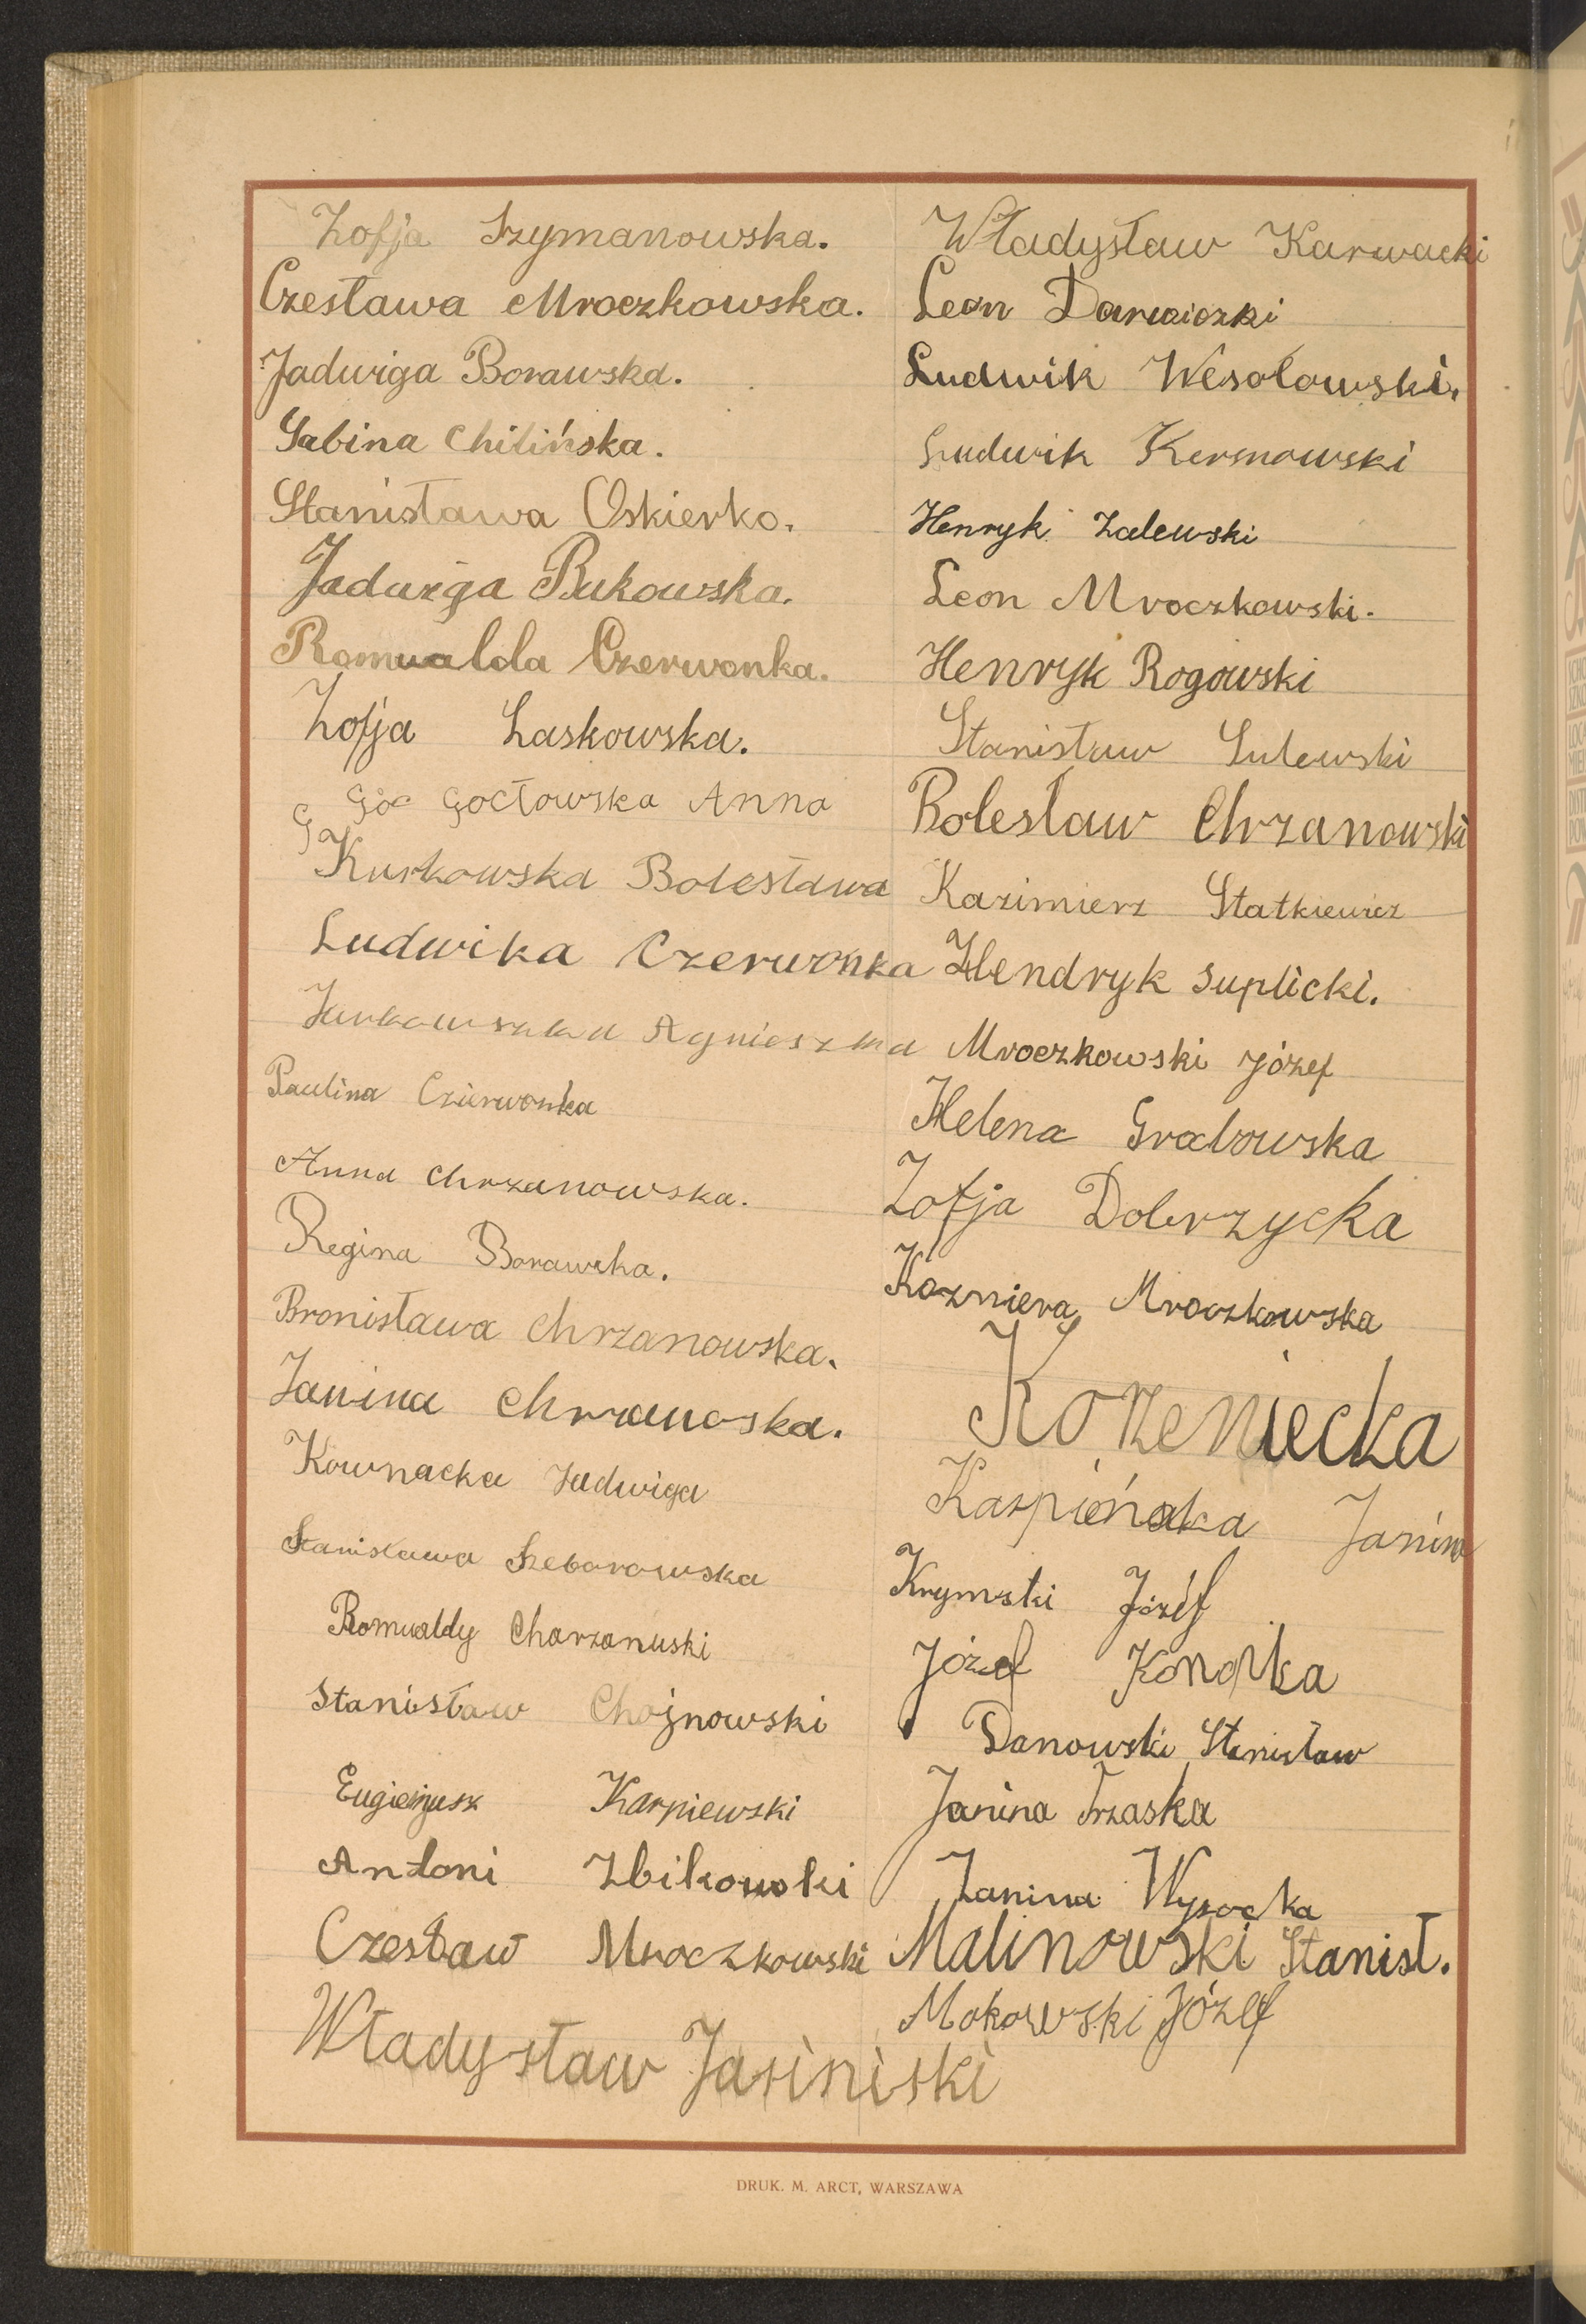 Zofja Szymanowska.
Czesława Mroczkowska.
Jadwiga Borawska.
Sabina Chilińska.
Stanisława Oskierko.
Jadwiga Bukowska.
Romualda Czerwonka.
Zofja Laskowska.
Goc Gocłowska Anna
Kurkowska Bolesława
Ludwika Czerwonka
Agnieszka
Paulina Czierwonka
Anna Chrzanowska.
Regina Borawska.
Bronisława Chrzanowska.
Janina Chrzanoska.
Kownacka Jadwiga
Stanisława Szeborowska
Romualdy Charzanuski
Stanisław Chojnowski
Eugienjusz Karpiewski
Antoni Zbikowski
Czesław Mroczkowski
Władysław Jasiniski
Władysław Karwacki
Leon
Ludwik Wesołowski.
Ludwik Kersnowski
Henryk Zalewski
Leon Mroczkowski.
Henryk Rogowski
Stanisław Sulewski
Bolesław Chrzanowski
Kazimierz Statkiewicz
Hendryk Suplicki.
Mroczkowski Józef
Helena Grabowska
Zofja Dobrzycka
Kazmiera Mroczkowska
Korzeniecka
Karpińska Janina
Krymski Józef
Józef Konopka
Danowski Stanisław
Janina Trzaska
Janina Wysocka
Malinowski Stanisł.
Makowski Józef
DRUK. M. ARCT, WARSZAWA